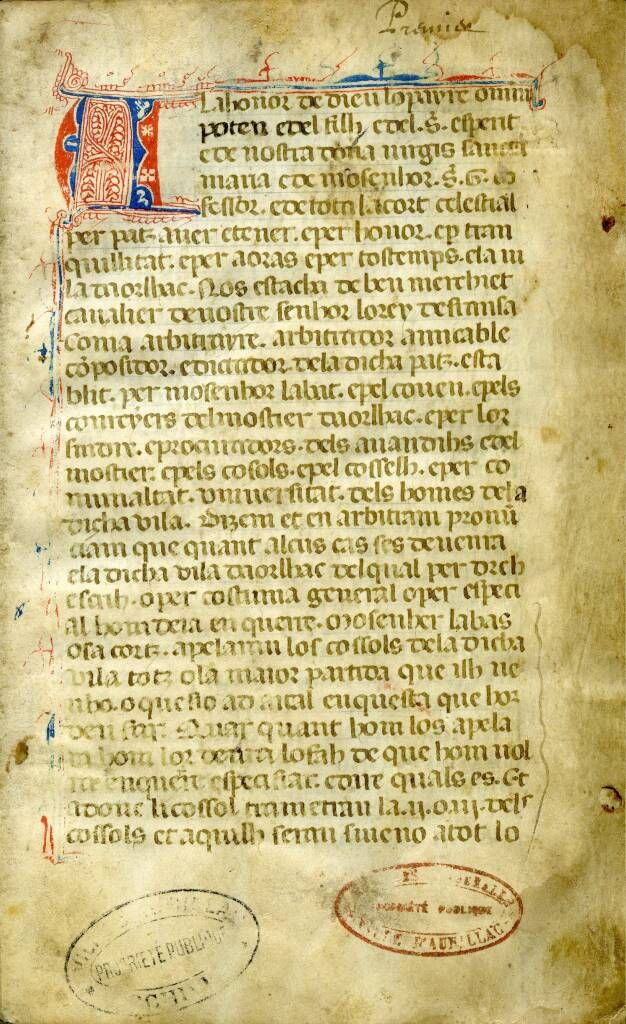 Premier
A la honor de dieu lo payre omni
poten e del filh e del .S. esperit
e de nostra dona virgis sancta
maria e de mosenhor .S. G. co
fessor. e de tota la cort celestial
per patz aver e tener. e per honor. e per tran
quillitat. e per aoras e per tostemps. e la vi
la daorlhac. Nos estacha de beu merchiet
cavalier de nostre senhor lo rey de fransa
coma arbitrayre. arbitrador amicable
cōpositor. e dictador. de la dicha patz. esta
blit. per mosenhor labat. e pel coven. e pels
del mostier daorlhac. e per lor
sindic. e procuradors. dels avandihs e del
mostier. e pels cosols. e pel cosselh. e per co
munaltat. universitat. dels homes de la
dicha vila. Dizem et en arbitran pronū
ciam que quant alcus cas ses devenra
e la dicha vila daorlhac del qual per drech
escrih. o per costuma general o per especi
al hom deia enquerre. Mosenher labas
o sa cortz. apelaran los cossols de la dicha
vila totz o la maior partida que ilh ve
nho. o que sio ad aital enquesta que hor
den far. Mayar quant hom los apela
ra hom lor deura lo fah de que hom vol
ra enquerre especifiar. cove quals es. Et
adonc li cossol trametrau la .ii. o .iii. dels
cossols et aquilh serau sineno a tot lo
PROPRIÉTÉ PUBLIQUE
PROPRIÉTÉ PUBLIQUE
VILLE D'AURILLAC